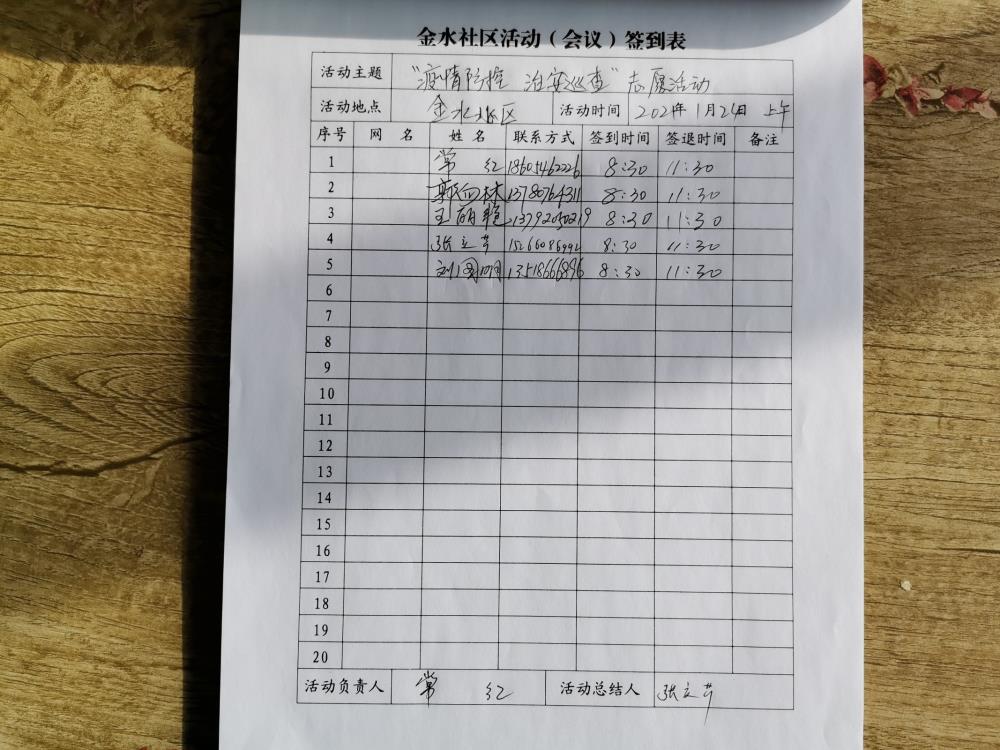 金水社区活动（会议）签到表
活动主题 "疫情防控 治安巡查"志愿活动
活动地点 金水社区 活动时间 2021年1月26日 上午
序号 网 名 姓 名 联系方式 签到时间 签退时间 备注
1 常 红 18605462226 8:30 11:30
2 13780764311 8:30 11:30
3 王丽艳 8:30 11:30
4 张立芹 15266086992 8:30 11:30
5 刘国明 13518666896 8:30 11:30
6
7
8
9
10
11
12
13
14
15
16
17
18
19
20
活动负责人 常 红 活动总结人 张立芹